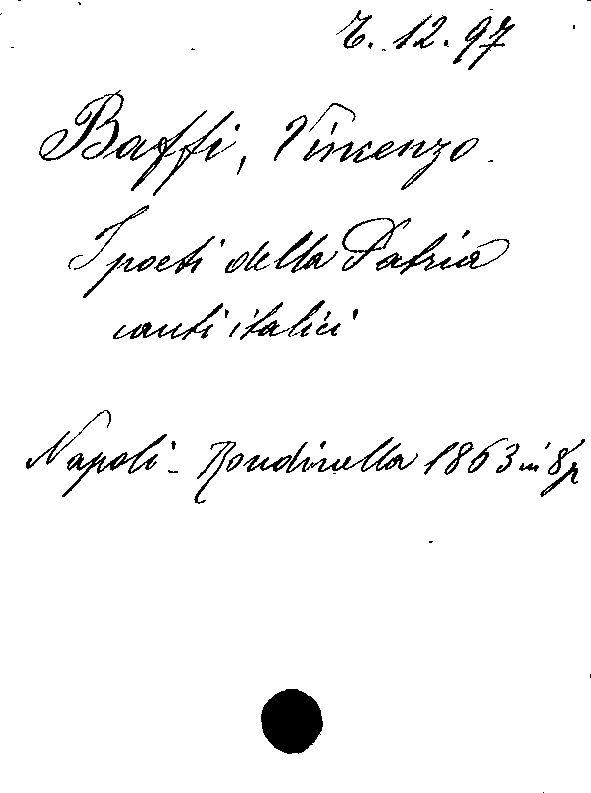 7. 12. 97
Baffi, Vincenzo
I poeti della Patria
canti italici
Napoli - Rondinella 1863 in 8p